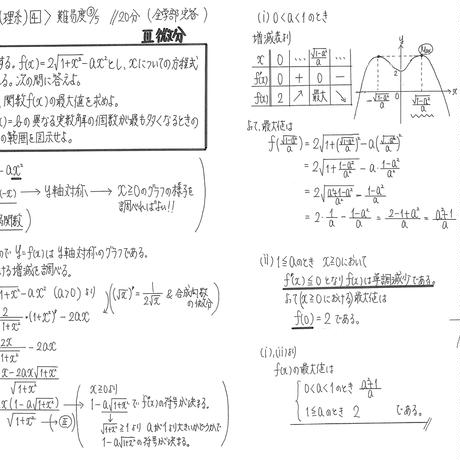 (理系) 4 > 難易度③/5 // 20分 (全学部定答)
Ⅲ 微分
する。f(x)=2√(1+x²)-ax²とし、xについての方程式
る。次の問に答えよ。
関数f(x)の最大値を求めよ。
(x)=bの異なる実数解の個数が最も多くなるときの
の範囲を図示せよ。
-ax²
(-x) → y軸対称、→ x≧0のグラフの様子を
調べればよい!!
偶関数)
ので y=f(x)は y軸対称のグラフである。
ける増減を調べる。
1+x²-ax² (a>0) より ((√x)'=1/(2√x) & 合成関数
の微分)
2/√(1+x²)・(1+x²)'-2ax
2x/√(1+x²)-2ax
x-2ax√(1+x²)/√(1+x²)
x(1-a√(1+x²))/√(1+x²) →
x≧0より
1-a√(1+x²)で f'(x)の符号が決まる。
↓
√(1+x²)≧1より aが1より大きいかどうかで
1-a√(1+x²)の符号が決まる。
(i) 0<a<1のとき
増減表より
x 0 … √(1-a²)/a …
f'(x) 0 + 0 -
f(x) 2 ↗ 最大 ↘
y
max
2
-√(1-a²)/a 0 √(1-a²)/a x
よって、最大値は
f(√(1-a²)/a)=2√(1+(√(1-a²)/a)²)-a(√(1-a²)/a)²
=2√(1+(1-a²)/a²)-a・(1-a²)/a²
=2√((a²+1-a²)/a²)-(1-a²)/a
=2・1/a-(1-a²)/a=(2-1+a²)/a=(a²+1)/a
(ii) 1≦aのとき x≧0において
f'(x)≦0 となり f(x)は単調減少である。
よって(x≧0における)最大値は
f(0)=2 である。
(i),(ii)より
f(x)の最大値は
0<a<1のとき (a²+1)/a
1≦aのとき 2 である。